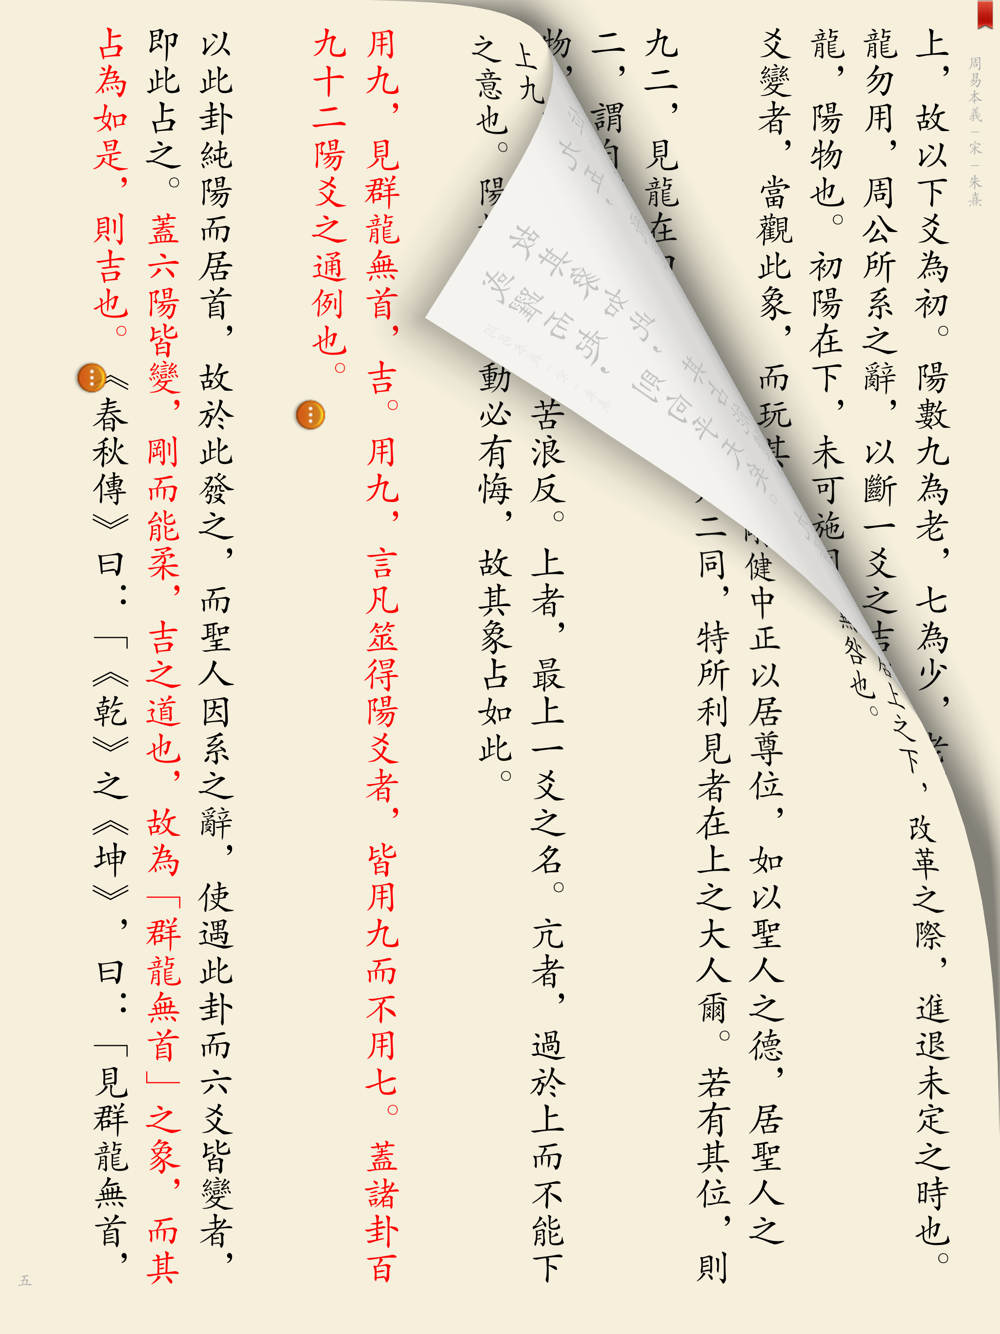 周易本義－宋－朱熹
上，故以下爻為初。陽數九為老，七為少，老
龍勿用，周公所系之辭，以斷一爻之吉
龍，陽物也。初陽在下，未可施
爻變者，當觀此象，而玩其
九二，見龍在
二，謂
物，
居上之下，改革之際，進退未定之時也。
無咎也。
剛健中正以居尊位，如以聖人之德，居聖人之
二同，特所利見者在上之大人爾。若有其位，則
上九
苦浪反。上者，最上一爻之名。亢者，過於上而不能下
之意也。陽 動必有悔，故其象占如此。
用九，見群龍無首，吉。用九，言凡筮得陽爻者，皆用九而不用七。蓋諸卦百
九十二陽爻之通例也。
以此卦純陽而居首，故於此發之，而聖人因系之辭，使遇此卦而六爻皆變者，
即此占之。蓋六陽皆變，剛而能柔，吉之道也，故為「群龍無首」之象，而其
占為如是，則吉也。《春秋傳》曰：「《乾》之《坤》，曰：「見群龍無首，
五